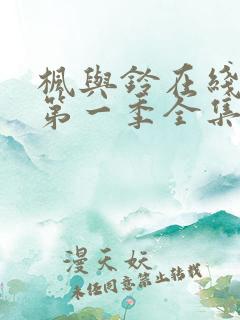 楓與鈴在綫
第一季全集
漫天妖
未任同意禁止轉載